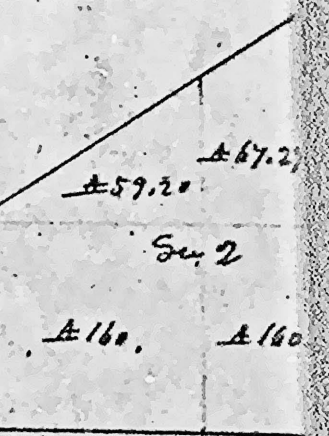 A 67.2
A 59.20
Sec. 2
A 160.
A 160